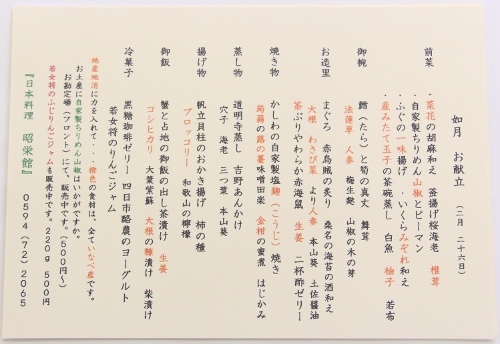 如月 お献立 (二月 二十六日)
前菜
・菜花の胡麻和え 釜揚げ桜海老 椎茸
・自家製ちりめん山椒とピーマン
・ふぐの一味揚げ ・いくらみぞれ和え
・産みたて玉子の茶碗蒸し 白魚 柚子 若布
御椀
鱈(たら)と筍の真丈 舞茸
法蓮草 人参 梅生麩 山椒の木の芽
お造里
まぐろ 赤烏賊の炙り 桑名の海苔の酒和え
大根 わさび菜 より人参 本山葵 土佐醤油
茶ぶりやわらか赤海鼠 生姜 二杯酢ゼリー
焼き物
かしわの自家製塩麹(こうじ)焼き
蒟蒻の蕗の薹味噌田楽 金柑の蜜煮 はじかみ
蒸し物
道明寺蒸し 吉野あんかけ
穴子 海老 三つ葉 本山葵
揚げ物
帆立貝柱のおかき揚げ 柿の種
ブロッコリー 和歌山の檸檬
御飯
蟹と占地の御飯の出し茶漬け 生姜
コシヒカリ 大葉紫蘇 大根の糠漬け 柴漬け
冷菓子
黒糖珈琲ゼリー 四日市酪農のヨーグルト
若女将のりんごジャム
地産地消に力を入れて・・・橙色の食材は、全ていなべ産です。
お土産に自家製ちりめん山椒はいかがですか。
お勘定場(フロント)にて、販売中です。(500円〜)
若女将のふじりんごジャムも販売中です。220g 500円
『日本料理 昭栄館』 0594(72)2065